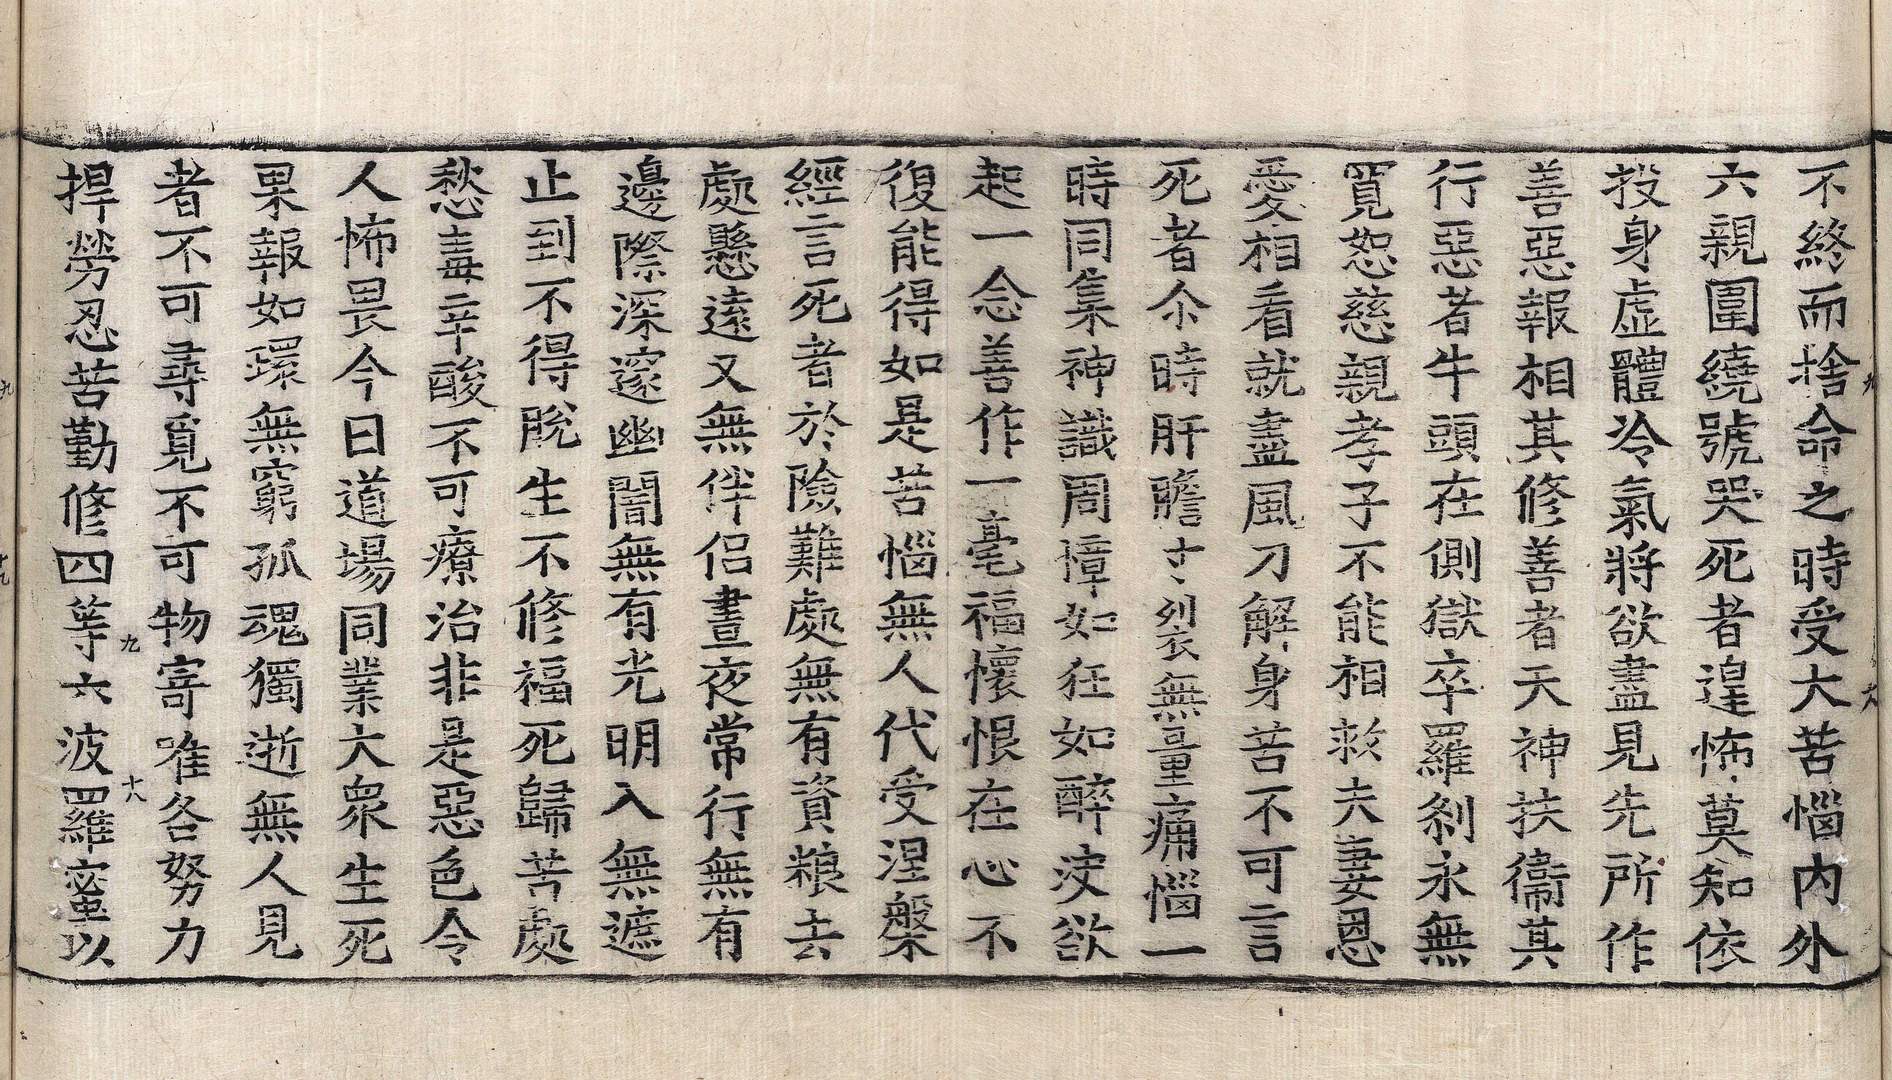 不終而捨命之時受大苦惱內外
六親圍繞號哭死者遑怖莫知依
投身虛體冷氣將欲盡見先所作
善惡報相其修善者天神扶衞其
行惡者牛頭在側獄卒羅剎永無
寬恕慈親孝子不能相救夫妻恩
愛相看就盡風刀解身苦不可言
死者尒時肝膽寸寸裂無量痛惱一
時同集神識周慞如狂如醉浚欲
起一念善作一毫福懷恨在心不
復能得如是苦惱無人代受涅槃
經言死者於險難處無有資粮去
處懸遠又無伴侶晝夜常行無有
邊際深邃幽闇無有光明入無遮
止到不得脫生不修福死歸苦處
愁毒辛酸不可療治非是惡色令
人怖畏今日道場同業大衆生死
果報如環無窮孤魂獨逝無人見
者不可尋覓不可物寄唯各努力
捍勞忍苦勤修四等六波羅蜜以
九
十八